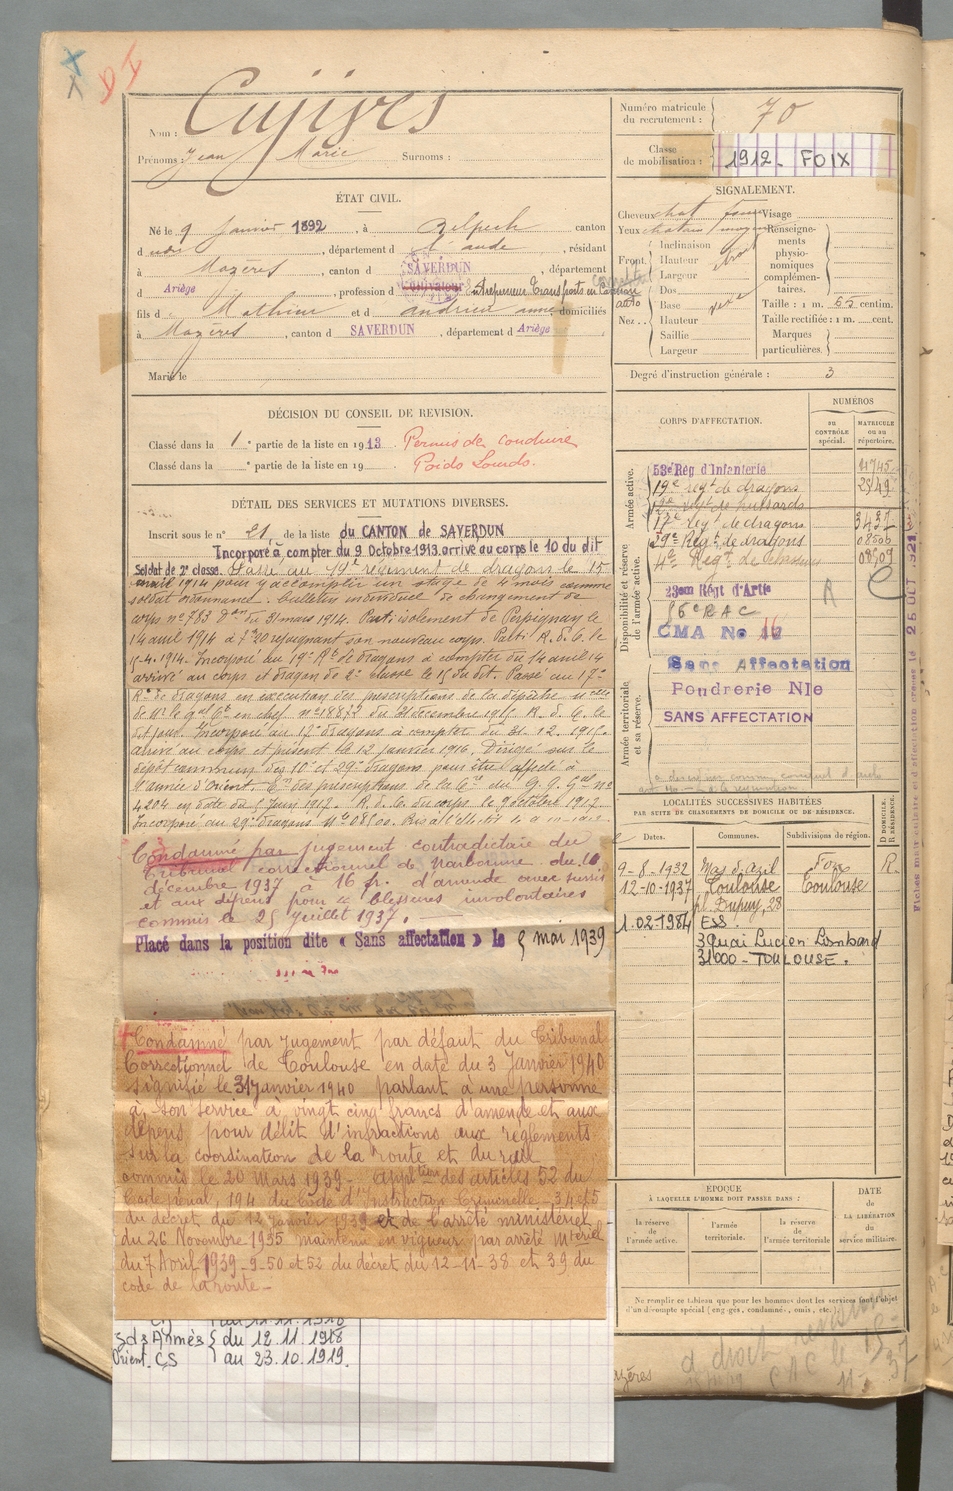 Nom : Cujives
Prénoms : Jean Marie Surnoms :
Numéro matricule du recrutement : 70
Classe de mobilisation : 1912 - FOIX
ÉTAT CIVIL.
Né le 9 Janvier 1892, à Belpech canton
d, département d l'aude, résidant
à Mazères, canton d SAVERDUN, département
d Ariège, profession d cultivateur Entrepreneur Transports en Commun
auto
fils d Mathieu et d andrieu anne domiciliés
à Mazères, canton d SAVERDUN, département d Ariège
Marié le
DÉCISION DU CONSEIL DE REVISION.
Classé dans la 1e partie de la liste en 1913. Permis de conduire
Classé dans la e partie de la liste en 19 Poids Lourds.
DÉTAIL DES SERVICES ET MUTATIONS DIVERSES.
Inscrit sous le n° 21 de la liste du CANTON de SAVERDUN
Incorporé à compter du 9 Octobre 1913. arrivé au corps le 10 du dit
Soldat de 2e classe. Passé au 19e régiment de dragons le 15
avril 1914 pour y accomplir un stage de 4 mois comme
soldat ordonnance. bulletin individuel de changement de
corps n° 783 du 31 mars 1914. Parti isolement de Perpignan le
14 avril 1914 à 7h20 rejoignant son nouveau corps. Parti R. d. C. le
15-4-1914. Incorporé au 19e Rt de dragons à compter du 14 avril 14
arrivé au corps et dragon de 2e classe le 15 du dit. Passé au 17e
Rt de dragons en exécution des prescriptions de la dépêche
de Mr le gal Ct en chef n° 18873 du 21 décembre 1915. R. d. C. le
dit jour. Incorporé au 17e dragons à compter du 31.12.1915.
arrivé au corps et présent le 12 janvier 1916. Dirigé sur le
dépôt commun des 10e et 29e dragons pour être affecté à
l'armée d'Orient. du G. Q. Gal n°
4294 en date du 5 juin 1917. R. d. C. du corps le 9 octobre 1917.
Incorporé au 29e dragons
Condamné par jugement contradictoire du
Tribunal correctionnel de Narbonne du 10
décembre 1937 à 16 fr. d'amende avec sursis
et aux dépens pour blessures involontaires
commis le 25 juillet 1937.
Placé dans la position dite « Sans affectation » le 5 mai 1939
Condamné par jugement par défaut du Tribunal
Correctionnel de Toulouse en date du 3 Janvier 1940
signifié le 31 janvier 1940 parlant à une personne
à son service à vingt cinq francs d'amende et aux
dépens pour délit d'infractions aux règlements
sur la coordination de la route et du rail
commis le 20 Mars 1939 - appltion des articles 52 du
Code pénal, 194 du Code d'Instruction Criminelle - 3 4 et 5
du décret du 12 janvier 1939 et de l'arrêté ministériel
du 26 Novembre 1935 maintenu en vigueur par arrêté Mtériel
du 7 Avril 1939 - 9-50 et 52 du décret du 12-11-38 et 39 du
code de la route -
au 11.11.1918
3ds Armés } du 12.11.1918
Orient. CS } au 23.10.1919.
SIGNALEMENT.
Cheveux chat foncé Visage
Yeux chatain moyen Renseignements physionomiques complémentaires.
Front. { Inclinaison
Hauteur
Largeur
Nez.. { Dos
Base
Hauteur
Saillie
Largeur
Taille : 1 m. 65 centim.
Taille rectifiée : 1 m. cent.
Marques particulières.
Degré d'instruction générale : 3
CORPS D'AFFECTATION.
NUMÉROS
au CONTRÔLE spécial.
MATRICULE ou au répertoire.
Armée active.
Disponibilité et réserve de l'armée active.
Armée territoriale et sa réserve.
53e Rég d'Infanterie
19e regt de dragons 2349
regt de hussards
17e regt de dragons 3437
29e Regt de dragons 08506
4e Regt de 08509
23em Régt d'Artie
56e RAC
CMA No 16
Sans Affectation
Poudrerie Nle
SANS AFFECTATION
25 OCT. 1921
LOCALITÉS SUCCESSIVES HABITÉES
PAR SUITE DE CHANGEMENTS DE DOMICILE OU DE RÉSIDENCE.
Dates. Communes. Subdivisions de région. D DOMICILE. R RÉSIDENCE.
9-8-1932 Mas d'Azil Foix R.
12-10-1937 Toulouse Toulouse
pl. Dupuy, 28
1.02-1984 ESS
3 Quai Lucien Lombard
31000 - TOULOUSE.
ÉPOQUE
À LAQUELLE L'HOMME DOIT PASSER DANS :
DATE de LA LIBÉRATION du service militaire.
la réserve de l'armée active.
l'armée territoriale.
la réserve de l'armée territoriale
Ne remplir ce tableau que pour les hommes dont les services font l'objet
d'un décompte spécial (engagés, condamnés, omis, etc.)